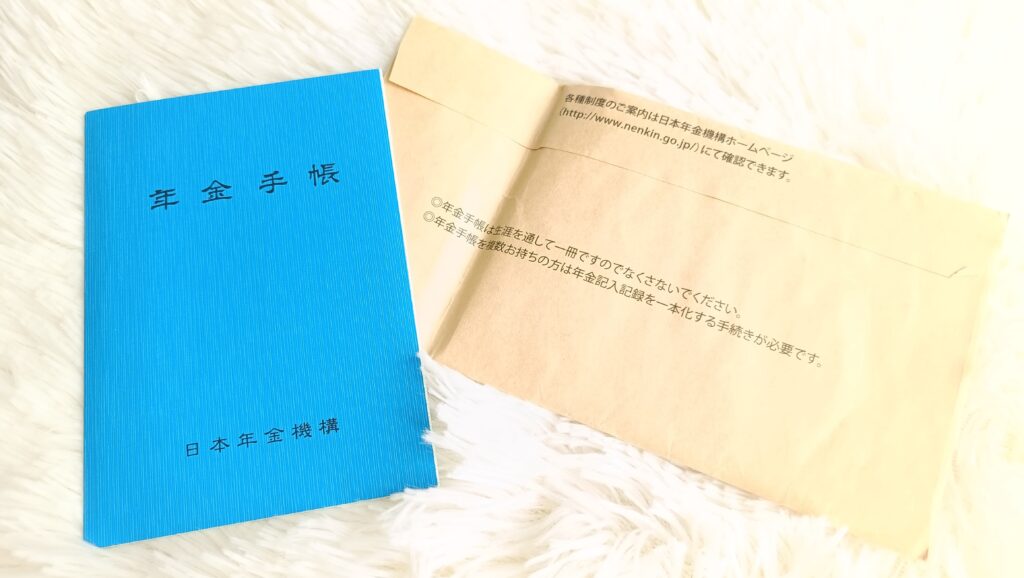 年金手帳
日本年金機構
各種制度のご案内は日本年金機構ホームページ
(http://www.nenkin.go.jp/)にて確認できます。
◎年金手帳は生涯を通して一冊ですのでなくさないでください。
◎年金手帳を複数お持ちの方は年金記入記録を一本化する手続きが必要です。